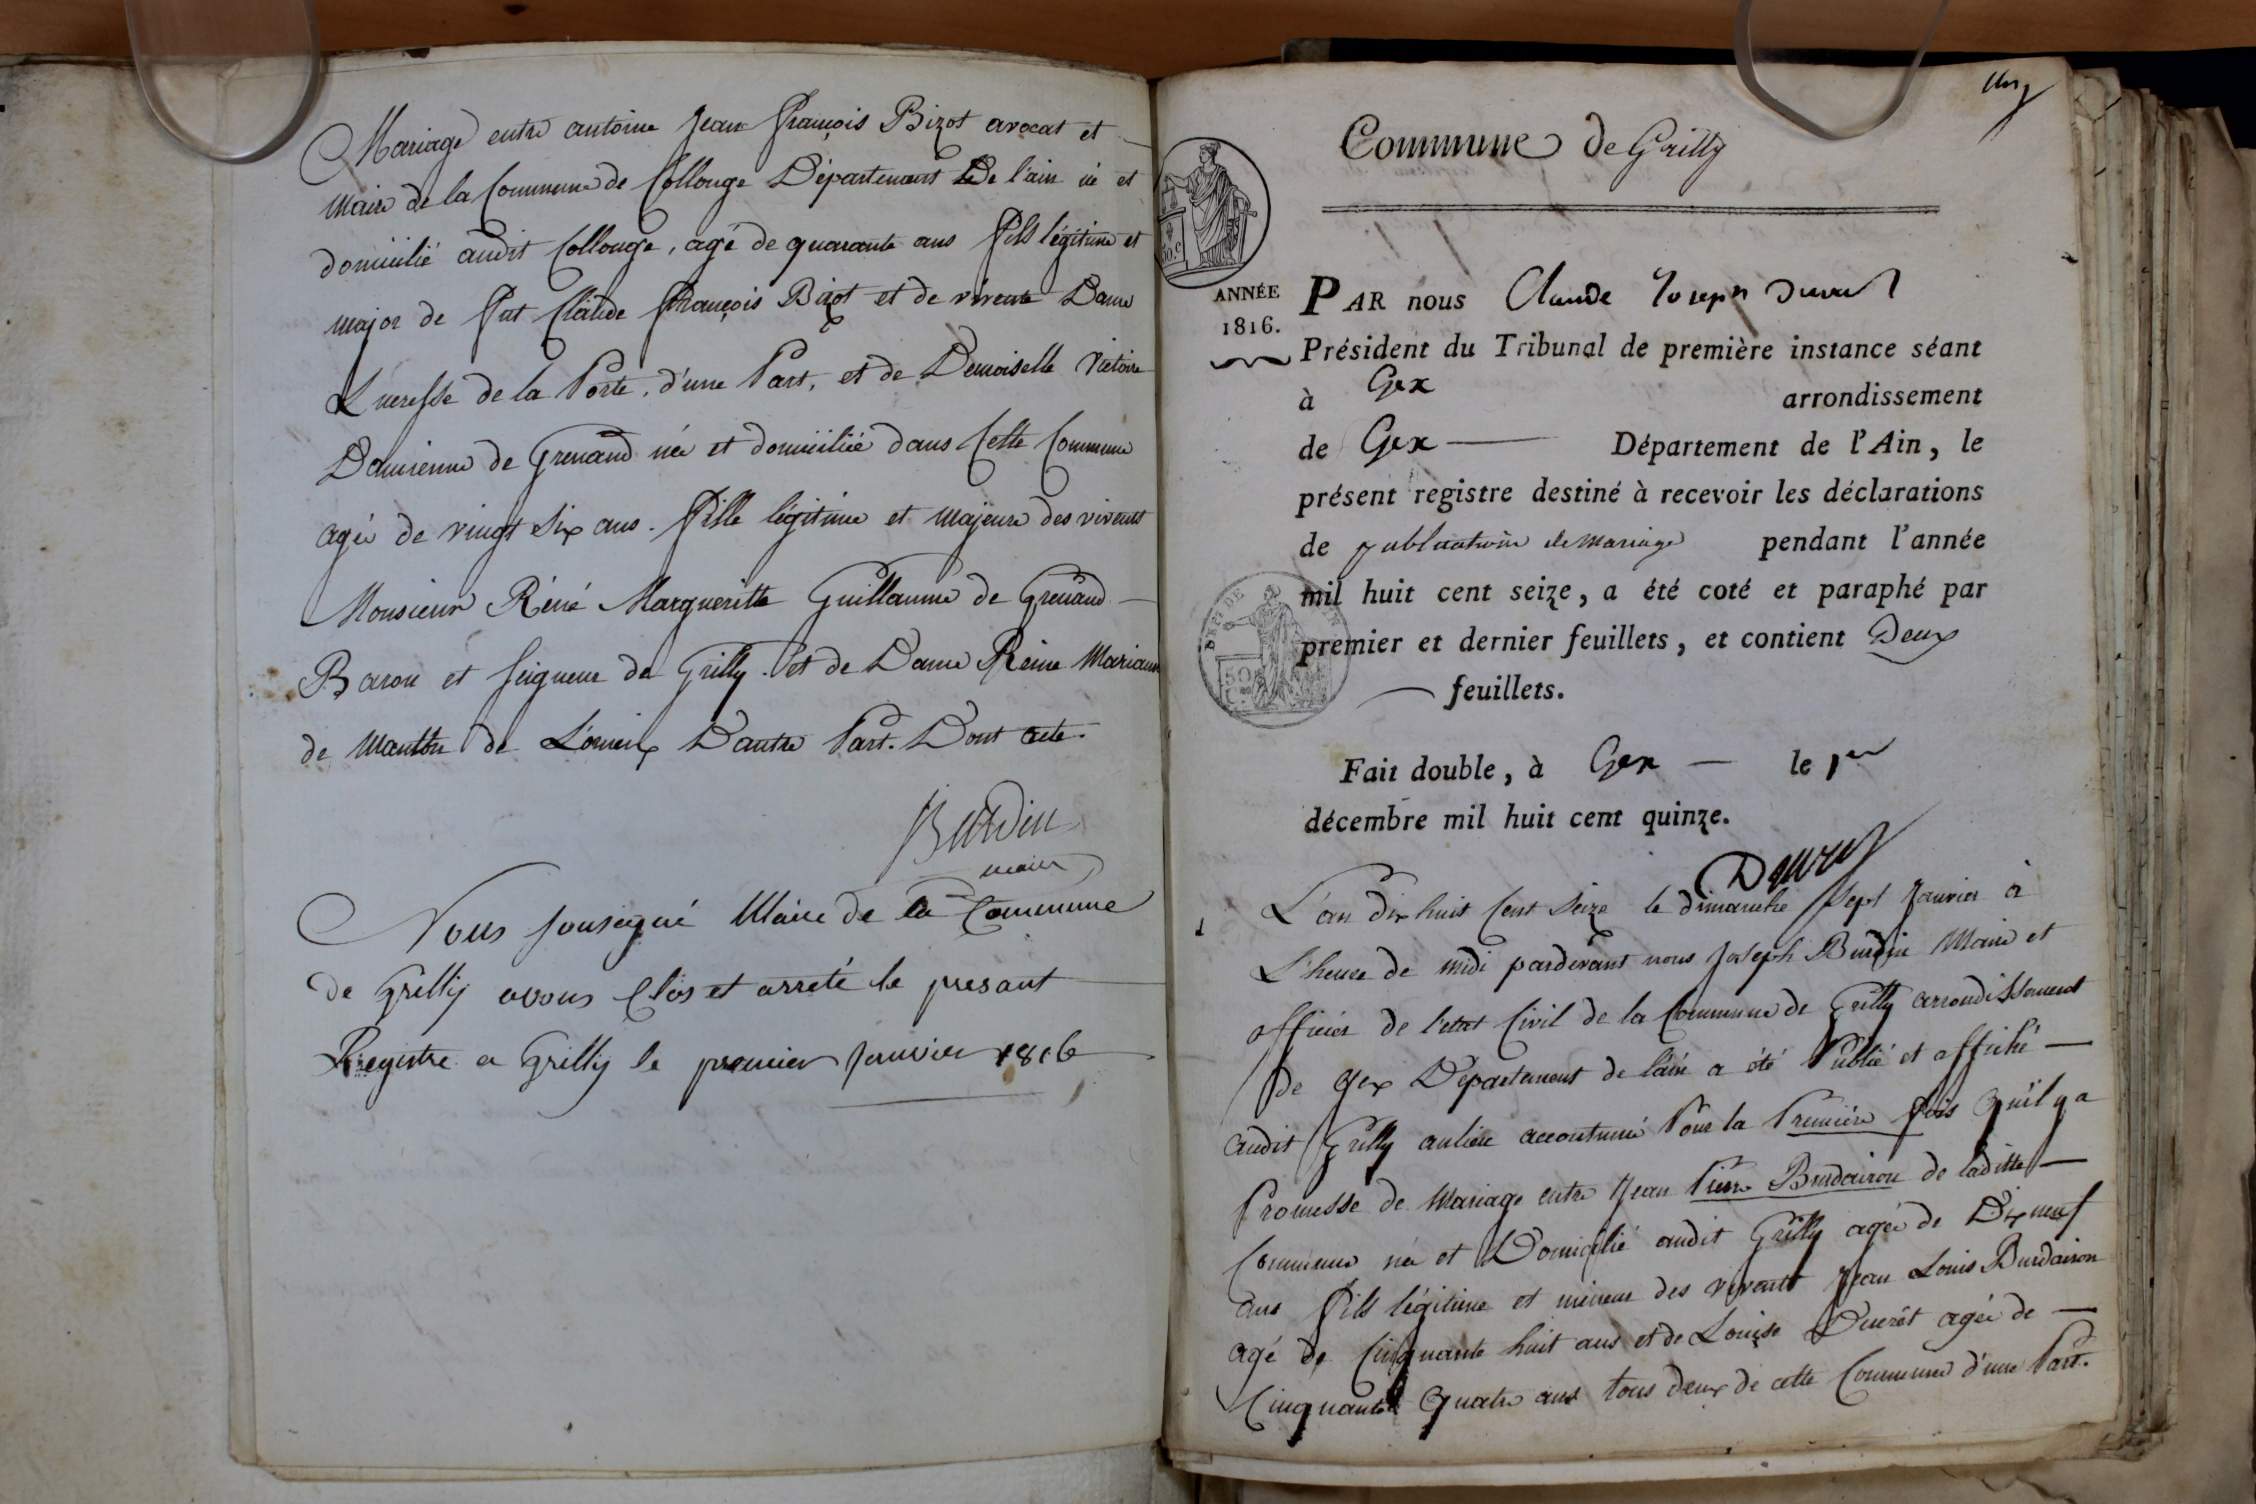 Mariage entre antoine Jean François Bizot avocat et
Maire de la Commune de Collonge Département De l'ain né et
domicilié audit Collonge, agé de quarante ans fils légitime et
major de fut Claude François Bizot et de vivente Dame
Lucresse de la Porte, d'une Part, et de Demoiselle Victoire
Damienne de Grenaud née et domiciliée dans Cette Commune
agée de vingt six ans. fille légitime et majeure des vivents
Monsieur Réné Margueritte Guillaume de Grenaud
Baron et Seigneur de Grilly. et de Dame Reine Marianne
de Manthe de Lornieux D'autre Part. Dont acte.
Burdin
maire
Nous sousigné Maire de la Commune
de Grilly avons Clos et arreté le presant
Registre a Grilly le premier Janvier 1816
Commune de Grilly
ANNÉE
1816.
PAR nous Claude Joseph
Président du Tribunal de première instance séant
à Gex arrondissement
de Gex Département de l'Ain, le
présent registre destiné à recevoir les déclarations
de publication de mariage pendant l'année
mil huit cent seize, a été coté et paraphé par
premier et dernier feuillets, et contient Deux
feuillets.
DEPT DE
50
Fait double, à Gex le 1er
décembre mil huit cent quinze.
1 L'an dix huit Cent Seize le dimanche Sept Janvier à
L'heure de midi pardevant nous Joseph Burdin Maire et
officier de l'etat Civil de la Commune de Grilly arrondissement
de Gex Département de l'ain a été Publié et affiché
audit Grilly aulieu accoutumé Pour la Première fois Qu'il y a
Promesse de Mariage entre Jean Pierre Burdairon de laditte
Commune né et Domicilié audit Grilly agée de Dix neuf
ans fils légitime et mineur des vivents Jean Louis Burdairon
agé de Cinquante huit ans et de Louise Ducrêt agée de
Cinquante Quatre ans tous deux de cette Commune d'une Part.